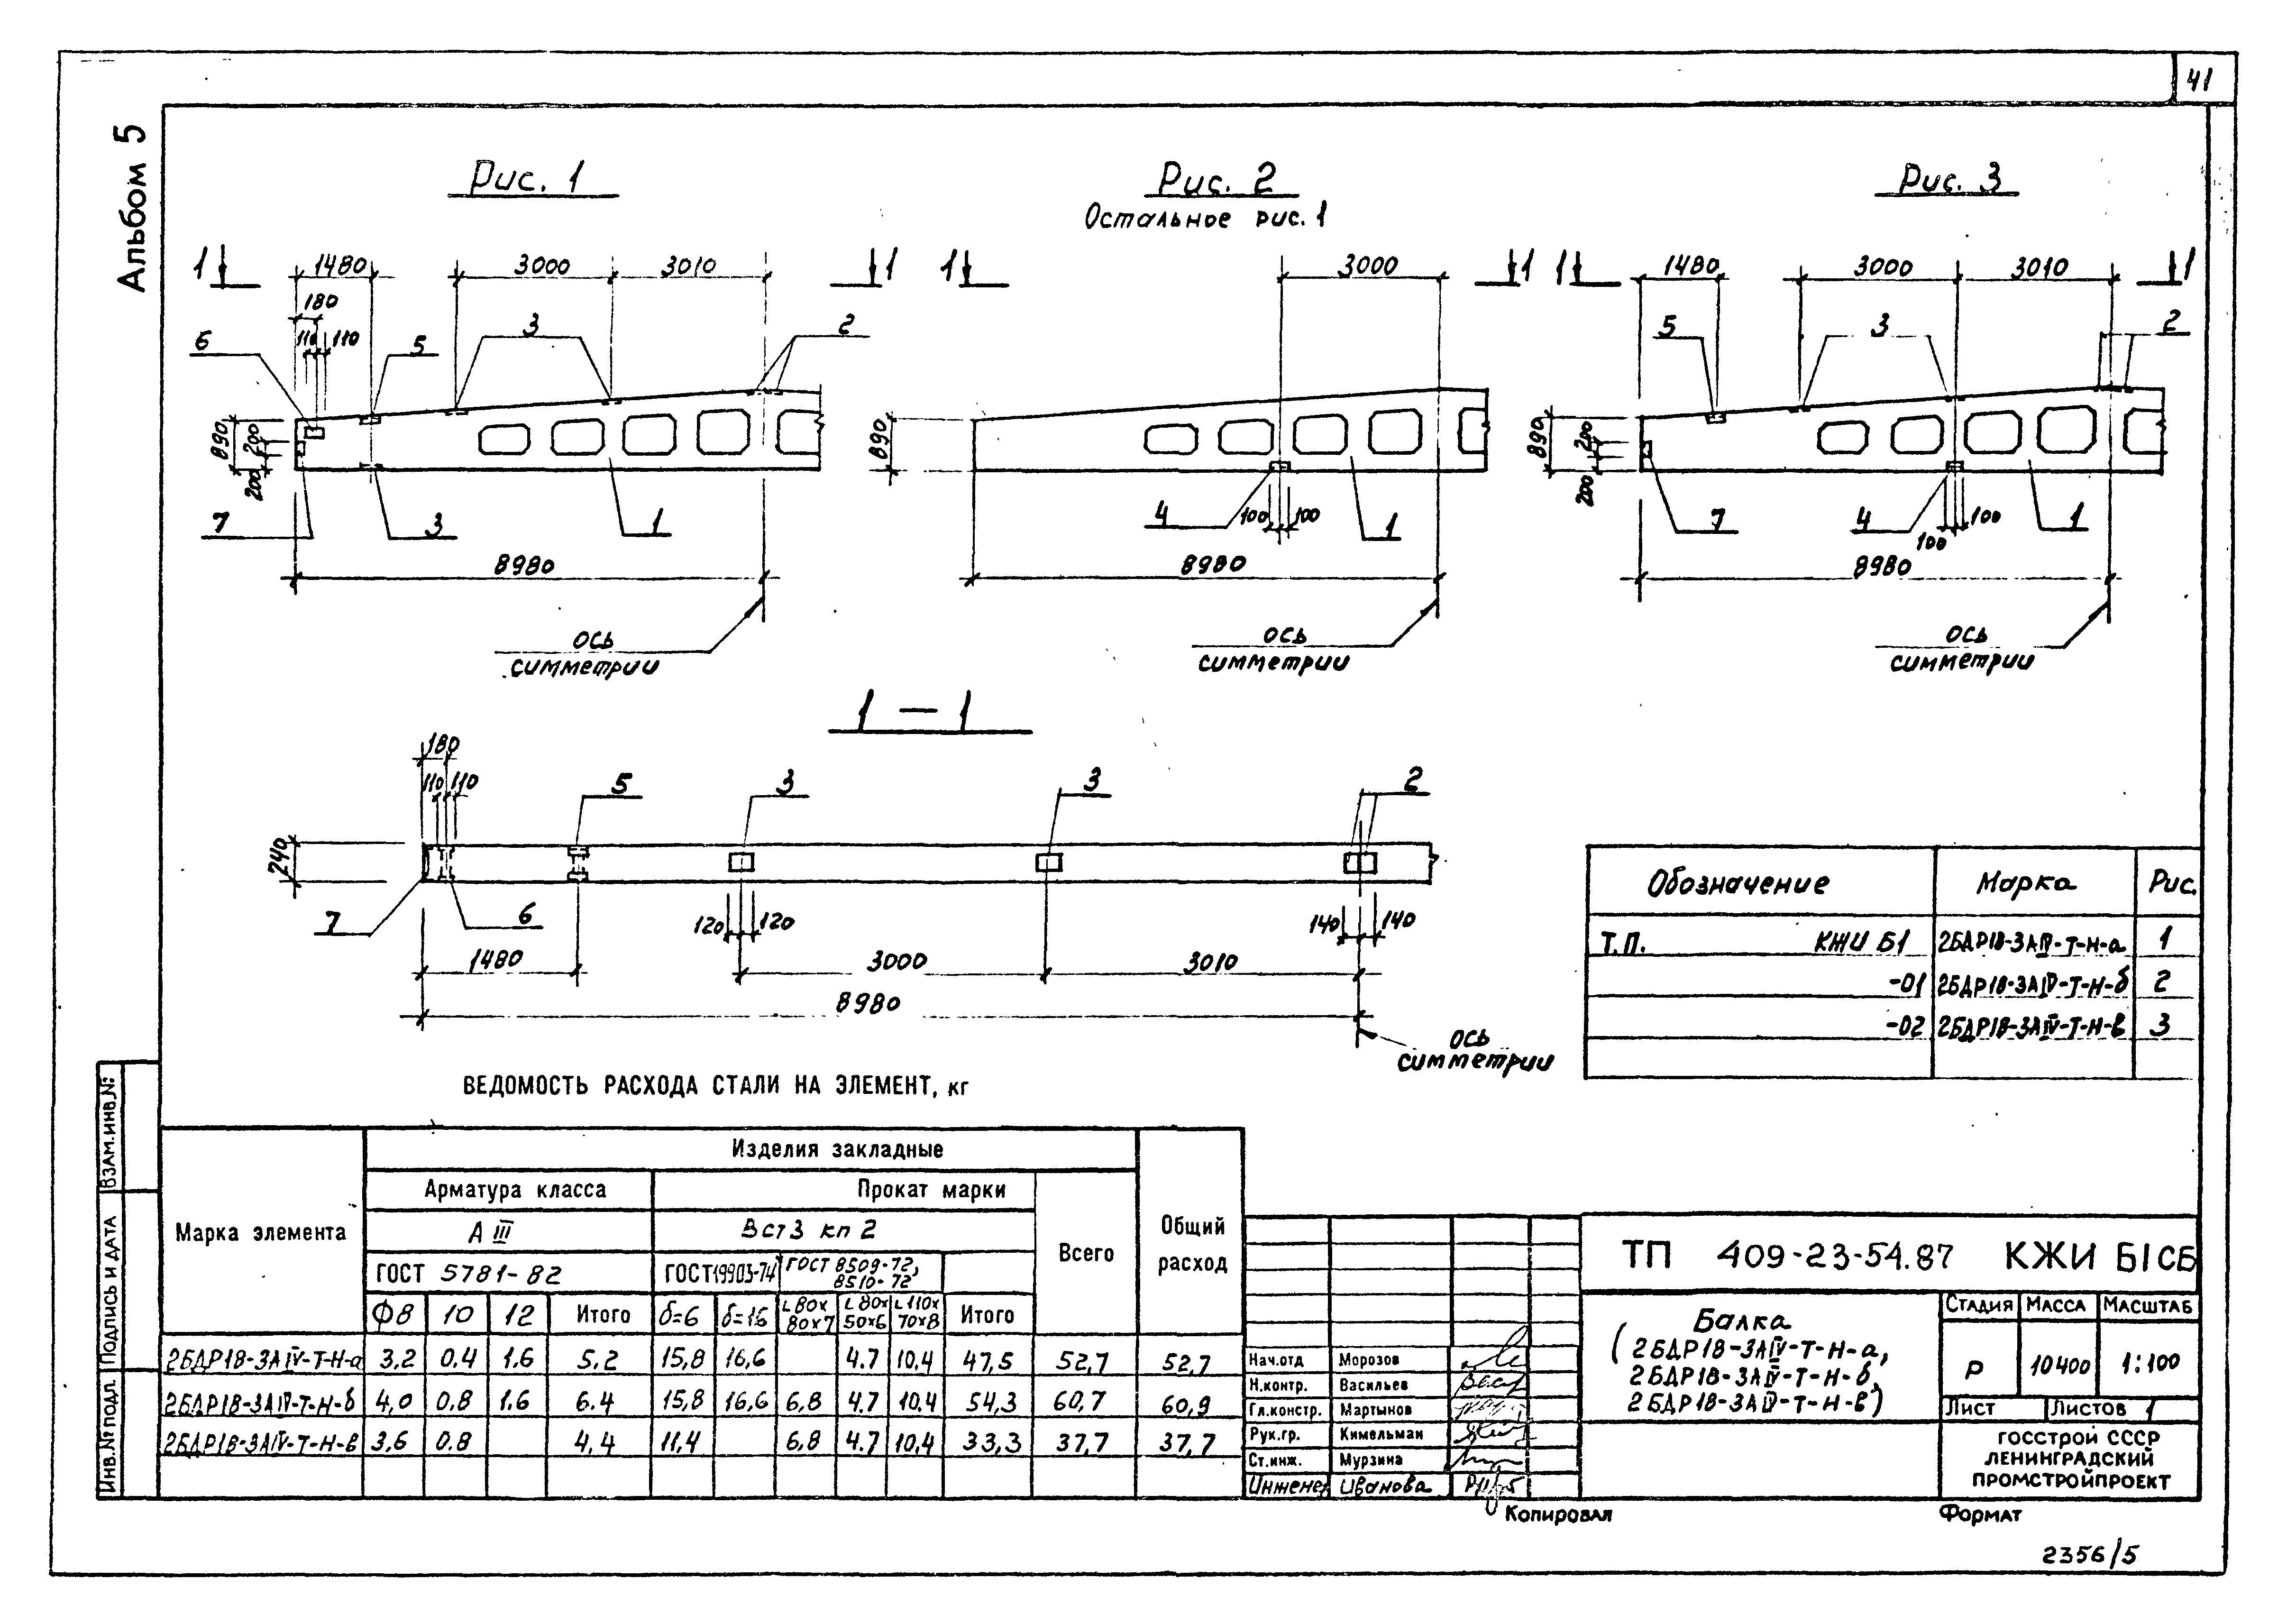 41
Альбом 5
Рис. 1
1 1
1480 3000 3010
180
110 110
6 5 3 2
890 200 200
7 3 1
8980
ось
симметрии
Рис. 2
Остальное рис. 1
1 1
3000
890
4 100 100 1
8980
ось
симметрии
Рис. 3
1 1
1480 3000 3010
5 3 2
890 200 200
7 4 100 100 1
8980
ось
симметрии
1 — 1
180
110 110
5 3 3 2
240
7 6
120 120 140 140
1480 3000 3010
8980
ось
симметрии
Обозначение Марка Рис.
Т.П. КЖИ Б1 2БДР18-3АIV-Т-Н-а 1
-01 2БДР18-3АIV-Т-Н-б 2
-02 2БДР18-3АIV-Т-Н-в 3
ВЕДОМОСТЬ РАСХОДА СТАЛИ НА ЭЛЕМЕНТ, кг
Марка элемента Изделия закладные Общий расход
Арматура класса Прокат марки Всего
А III Вст3 кп 2
ГОСТ 5781-82 ГОСТ19903-74 ГОСТ 8509-72, 8510-72
Ф8 10 12 Итого δ=6 δ=16 L80х80х7 L80х50х6 L110х70х8 Итого
2БДР18-3АIV-Т-Н-а 3.2 0.4 1.6 5.2 15,8 16,6 4.7 10,4 47,5 52,7 52,7
2БДР18-3АIV-Т-Н-б 4,0 0.8 1.6 6.4 15,8 16,6 6,8 4.7 10,4 54,3 60,7 60,9
2БДР18-3АIV-Т-Н-в 3.6 0.8 4,4 11,4 6,8 4.7 10,4 33,3 37,7 37,7
Взам.инв.№
Подпись и дата
Инв.№ подл.
Нач.отд Морозов
Н.контр. Васильев
Гл.констр. Мартынов
Рук.гр. Кимельман
Ст.инж. Мурзина
Инженер Иванова
ТП 409-23-54.87 КЖИ Б1СБ
Балка
(2БДР18-3АIV-Т-Н-а,
2БДР18-3АIV-Т-Н-б,
2БДР18-3АIV-Т-Н-в)
Стадия Масса Масштаб
Р 10400 1:100
Лист Листов 1
ГОССТРОЙ СССР
ЛЕНИНГРАДСКИЙ
ПРОМСТРОЙПРОЕКТ
Копировал Формат
2356/5